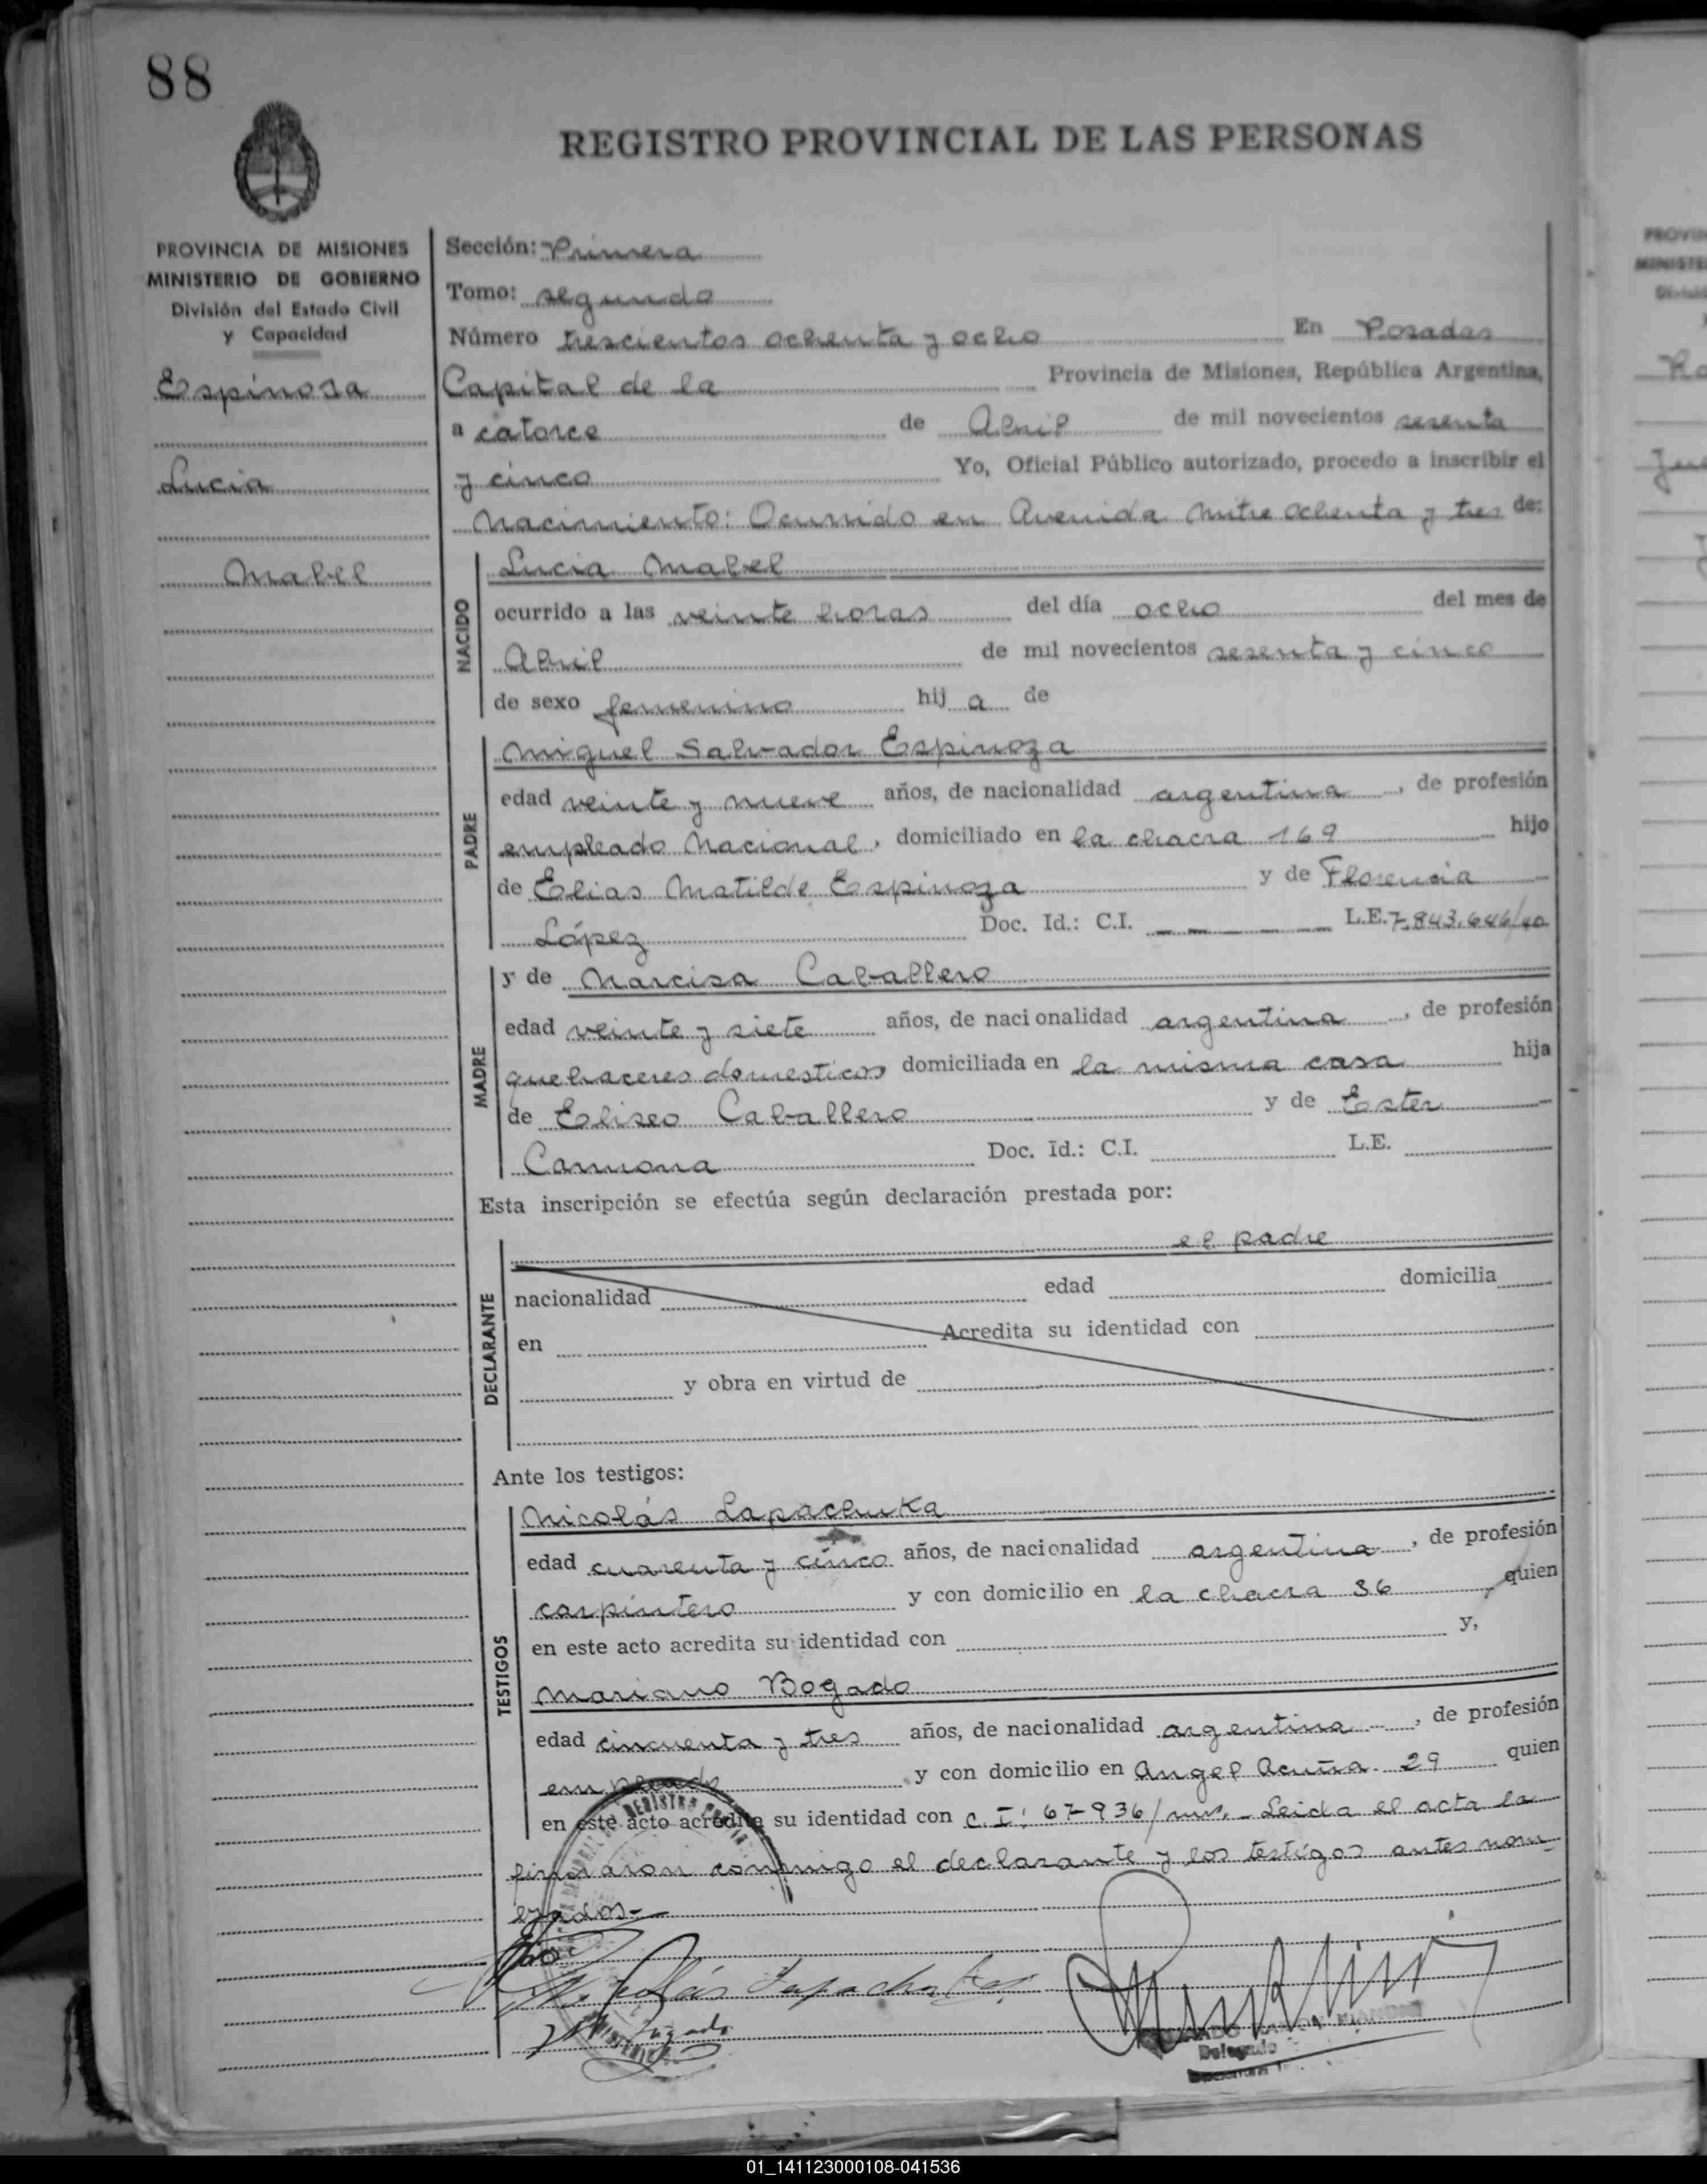 88
REGISTRO PROVINCIAL DE LAS PERSONAS
PROVINCIA DE MISIONES
MINISTERIO DE GOBIERNO
División del Estado Civil
y Capacidad
Espinosa
Lucia
Mabel
Sección: Primera
Tomo: segundo
Número trescientos ochenta y ocho En Posadas
Capital de la Provincia de Misiones, República Argentina,
a catorce de Abril de mil novecientos sesenta
y cinco Yo, Oficial Público autorizado, procedo a inscribir el
Nacimiento: Ocurrido en Avenida Mitre ochenta y tres de:
NACIDO
Lucia Mabel
ocurrido a las veinte horas del día ocho del mes de
Abril de mil novecientos sesenta y cinco
de sexo femenino hij a de
PADRE
Miguel Salvador Espinoza
edad veinte y nueve años, de nacionalidad argentina, de profesión
empleado Nacional, domiciliado en la chacra 169 hijo
de Elias Matilde Espinoza y de Florencia
López Doc. Id.: C.I. — — — L.E. 7.843.646/40
MADRE
y de Narcisa Caballero
edad veinte y siete años, de nacionalidad argentina, de profesión
quehaceres domesticos domiciliada en la misma casa hija
de Eliseo Caballero y de Ester
Carmona Doc. Id.: C.I. L.E.
Esta inscripción se efectúa según declaración prestada por:
DECLARANTE
el padre
nacionalidad edad domicilia
en Acredita su identidad con
y obra en virtud de
Ante los testigos:
TESTIGOS
Nicolás Lapachuka
edad cuarenta y cinco años, de nacionalidad argentina, de profesión
carpintero y con domicilio en la chacra 36, quien
en este acto acredita su identidad con y,
Mariano Bogado
edad cincuenta y tres años, de nacionalidad argentina, de profesión
empleado y con domicilio en Angel Acuña 29 quien
en este acto acredita su identidad con C.I: 67936/mns.- Leida el acta la
firmaron conmigo el declarante y los testigos antes nom
brados.-
Delegado
01_141123000108-041536